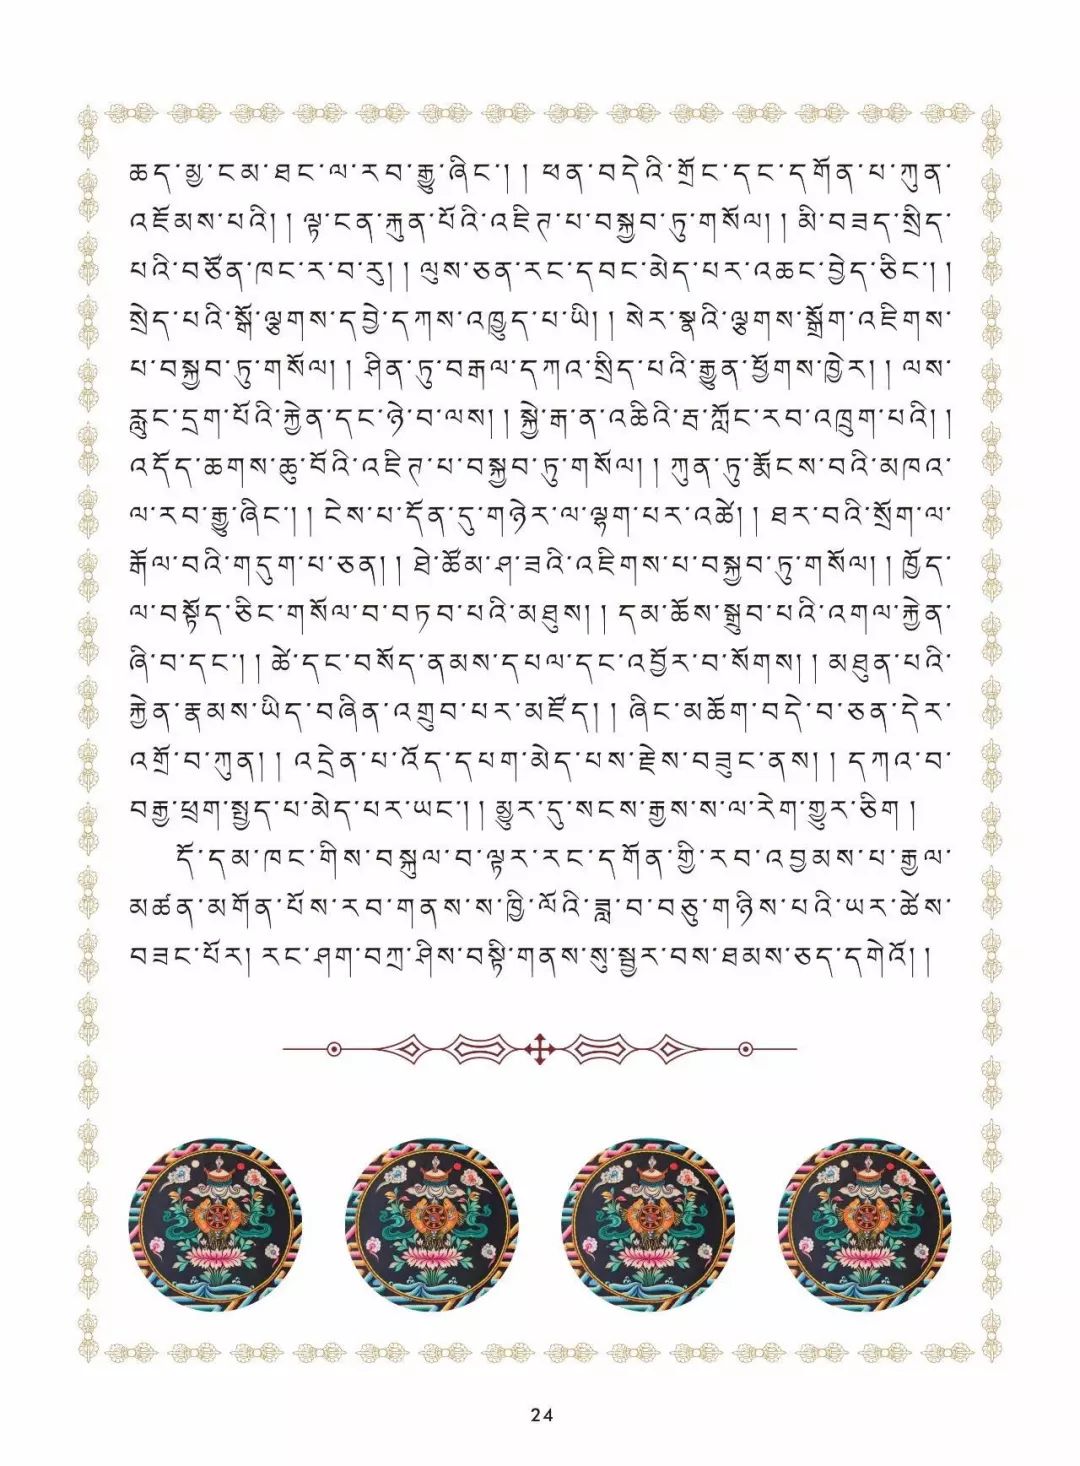 ཆད་མྱ་ངམ་ཐང་ལ་རབ་རྒྱུ་ཞིང་། །ཕན་བདེའི་གྲོང་དང་དགོན་པ་ཀུན་
འཇོམས་པའི། །ལྟ་ངན་རྐུན་པོའི་འཇིཊ་པ་བསྐྱབ་ཏུ་གསོལ། །མི་བཟད་སྲིད་
པའི་བཙོན་ཁང་ར་བ་རུ། །ལུས་ཅན་རང་དབང་མེད་པར་འཆང་བྱེད་ཅིང་། །
སྲེད་པའི་སྒོ་ལྕགས་དབྱེ་དཀས་འཁྱུད་པ་ཡི། །སེར་སྣའི་ལྕགས་སྒྲོག་འཇིགས་
པ་བསྐྱབ་ཏུ་གསོལ། །ཤིན་ཏུ་བརྒལ་དཀའ་སྲིད་པའི་རྒྱུན་ཕྱོགས་ཁྱེར། །ལས་
རླུང་དྲག་པོའི་རྐྱེན་དང་ཉེ་བ་ལས། །སྐྱེ་རྒ་ན་འཆིའི་རྦ་ཀློང་རབ་འཁྲུག་པའི། །
འདོད་ཆགས་ཆུ་བོའི་འཇིཊ་པ་བསྐྱབ་ཏུ་གསོལ། །ཀུན་ཏུ་རྨོངས་བའི་མཁའ་
ལ་རབ་རྒྱུ་ཞིང་། །ངེས་པ་དོན་དུ་གཉེར་ལ་ལྷག་པར་འཚེ། །ཐར་བའི་སྲོག་ལ་
རྒོལ་བའི་གདུག་པ་ཅན། །ཐེ་ཚོམ་ཤ་ཟའི་འཇིགས་པ་བསྐྱབ་ཏུ་གསོལ། །ཁྱོད་
ལ་བསྟོད་ཅིང་གསོལ་བ་བཏབ་པའི་མཐུས། །དམ་ཆོས་སྒྲུབ་པའི་འགལ་རྐྱེན་
ཞི་བ་དང་། །ཚེ་དང་བསོད་ནམས་དཔལ་དང་འབྱོར་བ་སོགས། །མཐུན་པའི་
རྐྱེན་རྣམས་ཡིད་བཞིན་འགྲུབ་པར་མཛོད། །ཞིང་མཆོག་བདེ་བ་ཅན་དེར་
འགྲོ་བ་ཀུན། །འདྲེན་པ་འོད་དཔག་མེད་པས་རྗེས་བཟུང་ནས། །དཀའ་བ་
བརྒྱ་ཕྲག་སྤྱད་པ་མེད་པར་ཡང་། །མྱུར་དུ་སངས་རྒྱས་ས་ལ་རེག་གྱུར་ཅིག །
དོ་དམ་ཁང་གིས་བསྐུལ་བ་ལྟར་རང་དགོན་གྱི་རབ་འབྱམས་པ་རྒྱལ་
མཚན་མགོན་པོས་རབ་གནས་ས་ཁྱི་ལོའི་ཟླ་བ་བཅུ་གཉིས་པའི་ཡར་ཚེས་
བཟང་པོར། རང་ཤག་བཀྲ་ཤིས་བསྟི་གནས་སུ་སྦྱར་བས་ཐམས་ཅད་དགེའོ། །
24